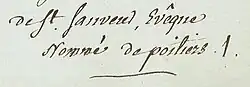 de St. Sauveur, Evêque
Nommé de poitiers .1.